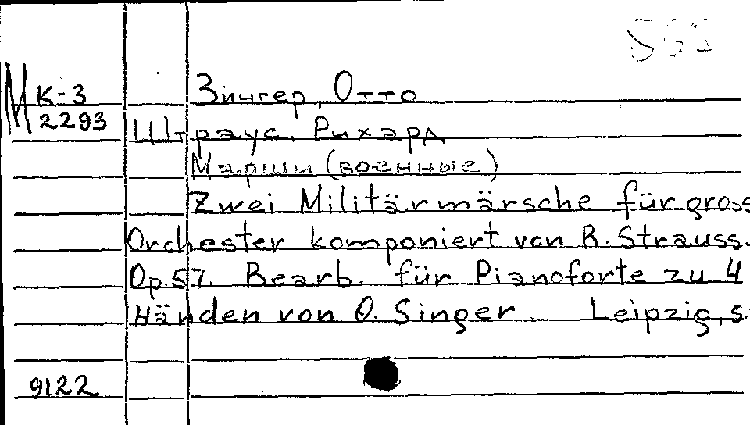 М К-3
2293
Зингер, Отто
Штраус. Рихард
Марши (военные)
Zwei Militärmärsche für gross
Orchester komponiert von R. Strauss.
Op. 57. Bearb. für Pianoforte zu 4
Händen von O. Singer. Leipzig, s.
9122